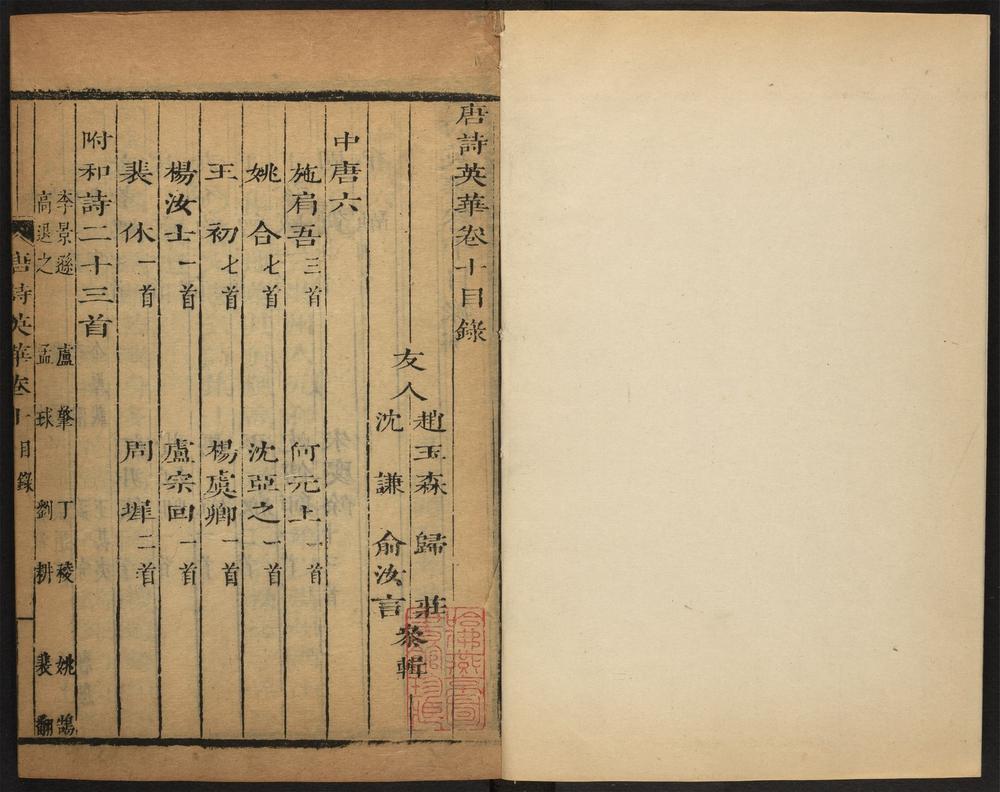 唐詩英華卷十目錄
友人
趙玉森 歸 莊
沈 謙 俞汝言
叅輯
中唐六
施肩吾三首 何元上一首
姚 合七首 沈亞之一首
王 初七首 楊虞卿一首
楊汝士一首 盧宗回一首
裴 休一首 周 墀二首
附和詩二十三首
李景遜 盧 肇 丁 稜 姚 鵠
高退之 孟 球 劉 耕 裴 翻
唐詩英華卷十 目錄
哈佛燕京圖書館珍藏